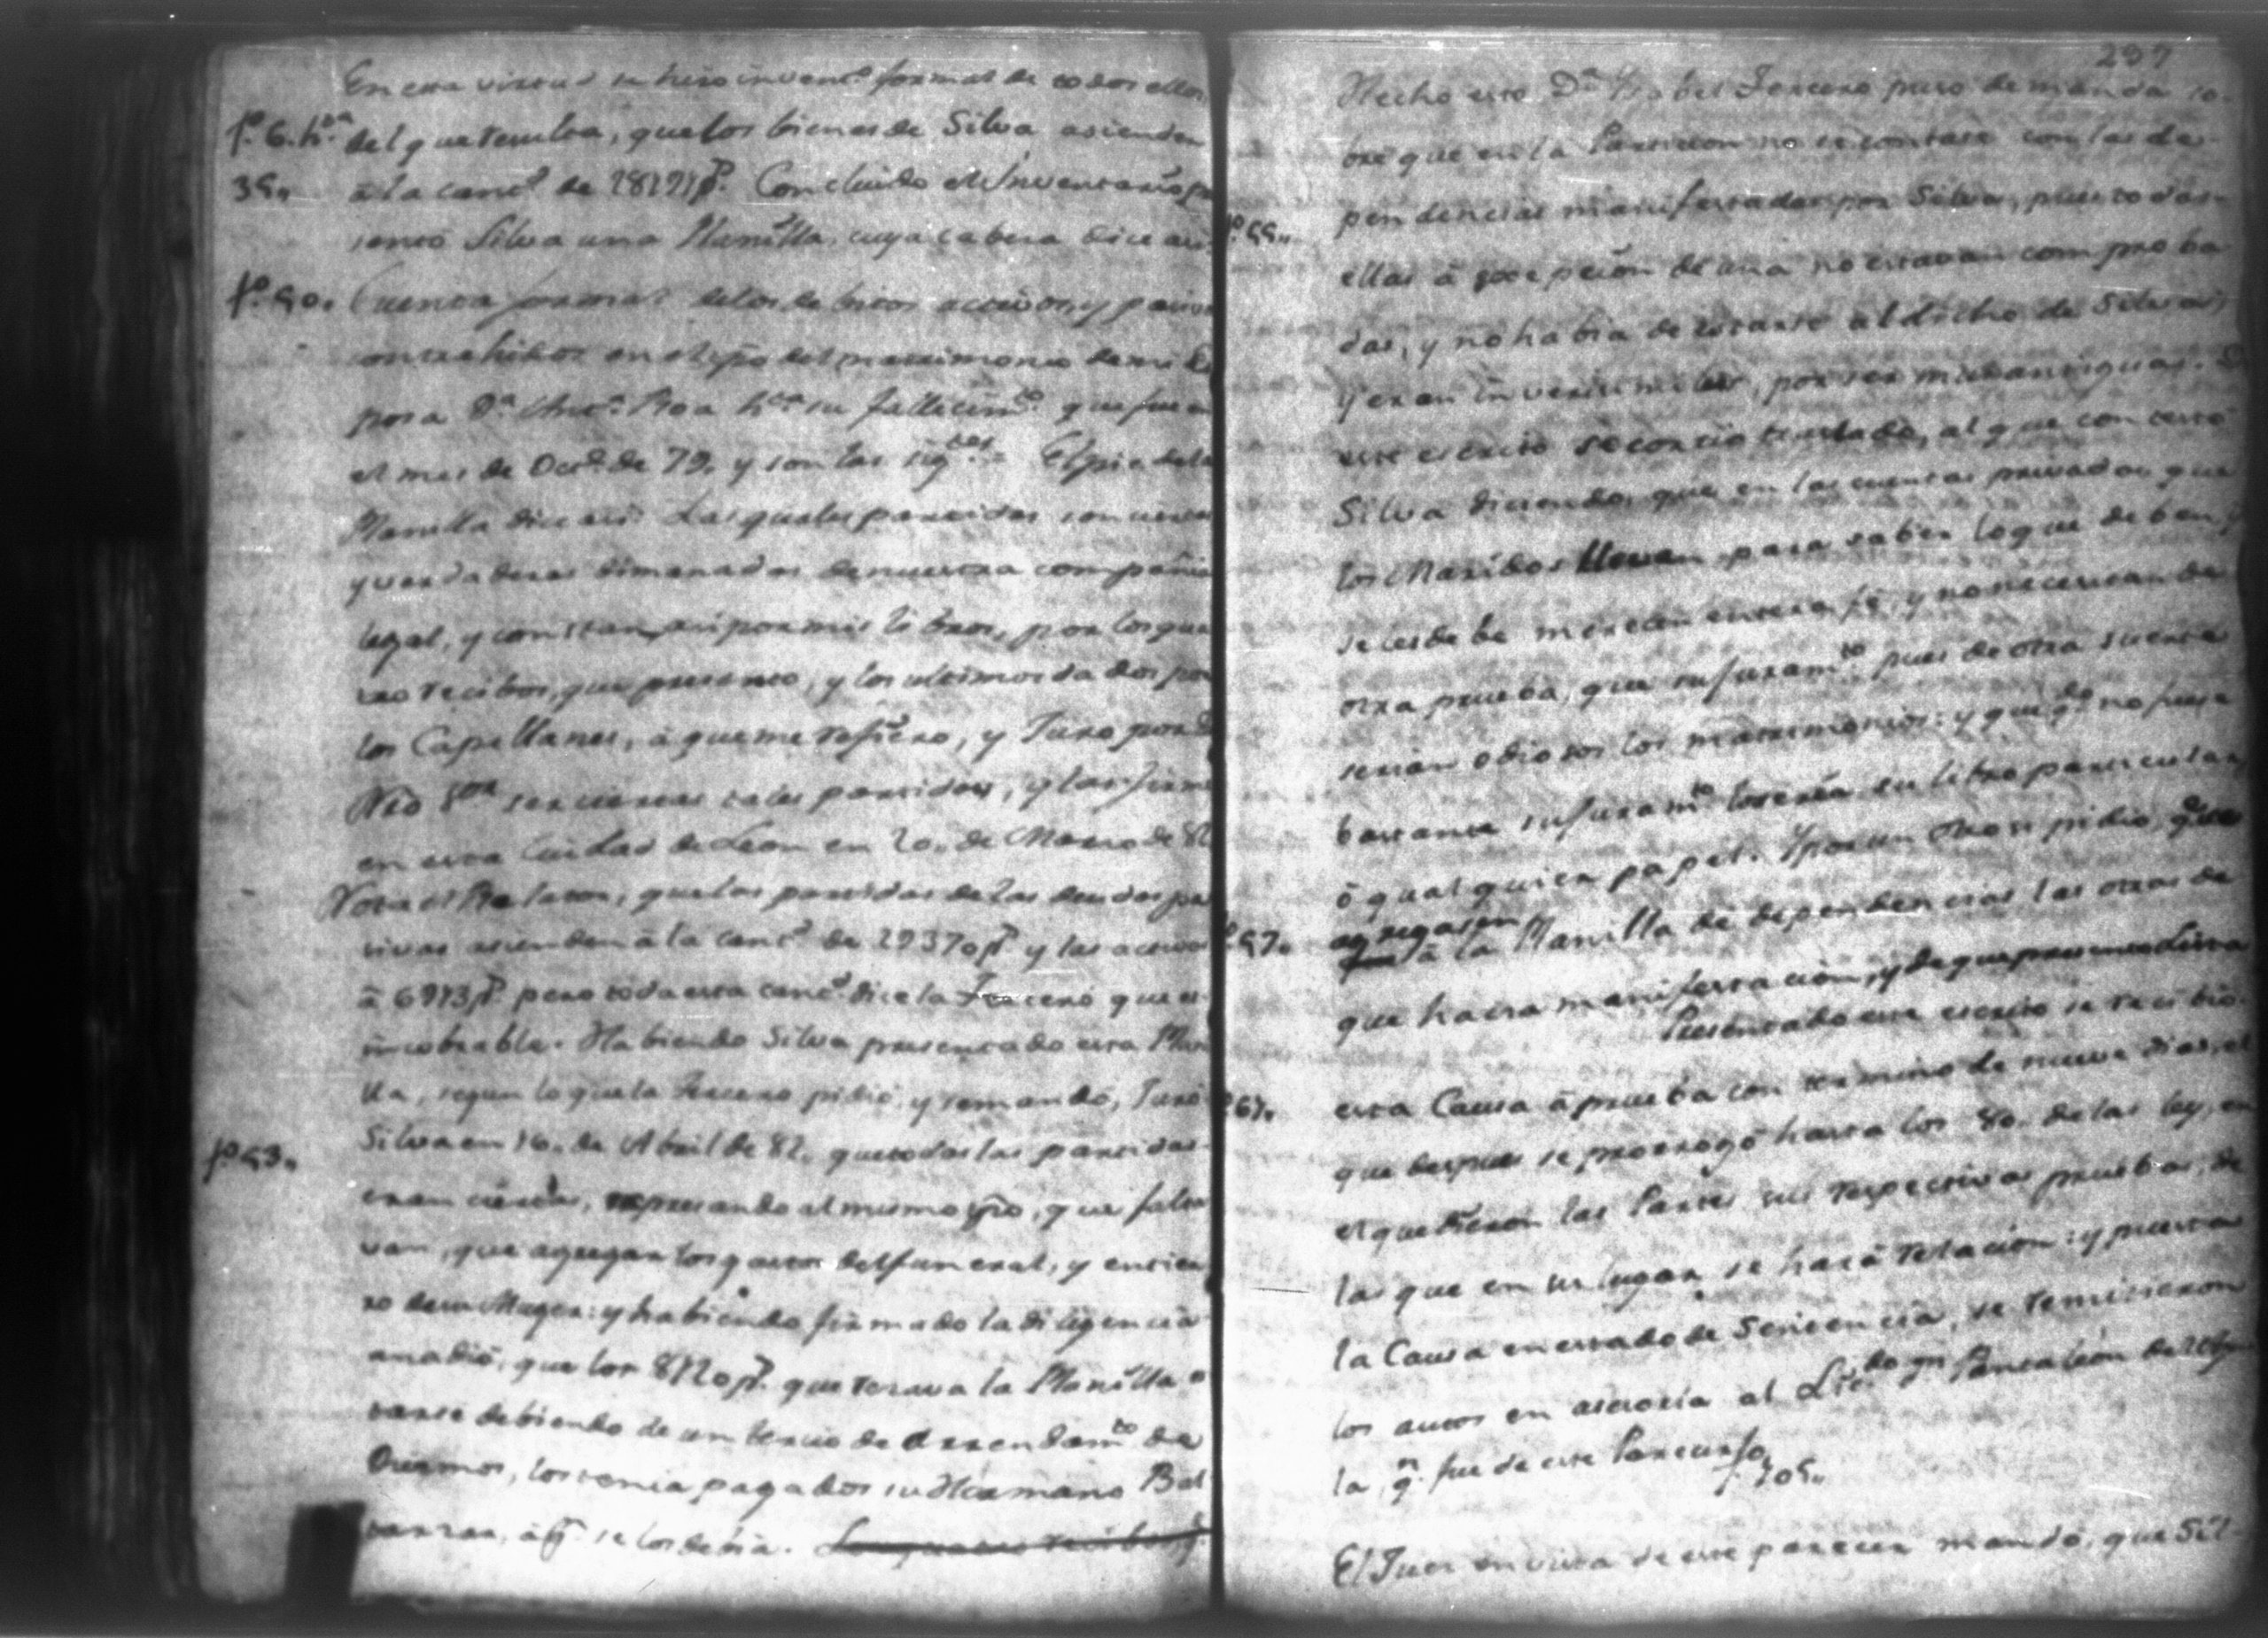 En esta virtud se hizo invent.o formal de todos ellos
f.o 6. h.ta del que resulta, que los bienes de Silva asienden
39,, â la cant.d de 28191 p.s Concluido el Inventario pre
sentó Silva una Planilla, cuya cabeza dice assi
f.o 50. Cuenta formal de los debitos activos, y pasivos
contrahidos en el tpo del matrimonio de mi Es
posa D.a Roa h.ta su fallecim.to que fue en
el mes de Oct.e de 79. y son las sig.tes El pie de la
Planilla dice asi: Las quales partidas son ciertas
y verdaderas dimanadas de nuestra compañia
legal, y constan asi por mis libros, por los qua
tro recibos, que presento, y los ultimos dados por
los Capellanes, â que me refiero, y Juro por D.
Nrô S.or ser ciertas tales partidas, y las firmé
en esta Ciudad de Leon en 20,, de Marzo de 82
Nota el Relator, que las partidas de las deudas pa
sivas asienden â la cant.d de 29370 p.s y las activas
â 6973 p.s pero toda esta cant.d dice la Tercero que es
incobrable. Habiendo Silva presentado esta Plani
lla, segun lo que la Tercero pidió, y se mandó, Juró
f.o 53,, Silva en 16. de Abril de 82. que todas las partidas
eran ciertas, expresando al mismo tpo, que falta
van, que agregar los gastos del funeral, y entier
ro de su Muger: y habiendo firmado la diligencia
anadió, que los 8120 p.s que resava la Planilla e
starse debiendo de un tercio de Arrendam.to de
Diezmos, los tenia pagados su Hermano Bal
tazar, â q.n se los debia.
297
Hecho esto D.a Ysabel Tercero puso demanda so-
bre que en la Particion no se contase con las de
f.o 55,, pendencias manifestadas por Silva, pues todas
ellas â excepcion de una no estavan comproba
das, y no habia de estarse al dicho de Silva;
y eran inverisimiles, por ser mui antiguas. De
este escrito se corrió traslado, al que contestó
Silva diciendo, que en las cuentas privadas que
los Maridos llevan para saber lo que deben y
se les debe merecen entera fé, y no necesitan de
otra prueba, que su Juram.to pues de otra suerte
serian odiosos los matrimonios: y que q.do no fuese
bastante su Juram.to lo seria su libro particular,
ô qualquier papel. Y por un otro si pidió, que
f.o 57. agregasen â la Planilla de dependencias las otras de
que hacia manifestacion, y de que presento Lista
Presentado este escrito se recibió
f.o 61. esta Causa â prueba con termino de nueve dias, el
que despues se prorrogó hasta los 80. de la ley, en
el que dieron las Partes sus respectivas pruebas, de
las que en su lugar se hará relacion: y puesta
la Causa en estado de Sentencia, se remitieron
los autos en asesoria al Lic.do D.n Pantaleon del
la q.n fue de este Parecer f.o 105,,
El Juez en vista de este parecer mandó, que Sil-